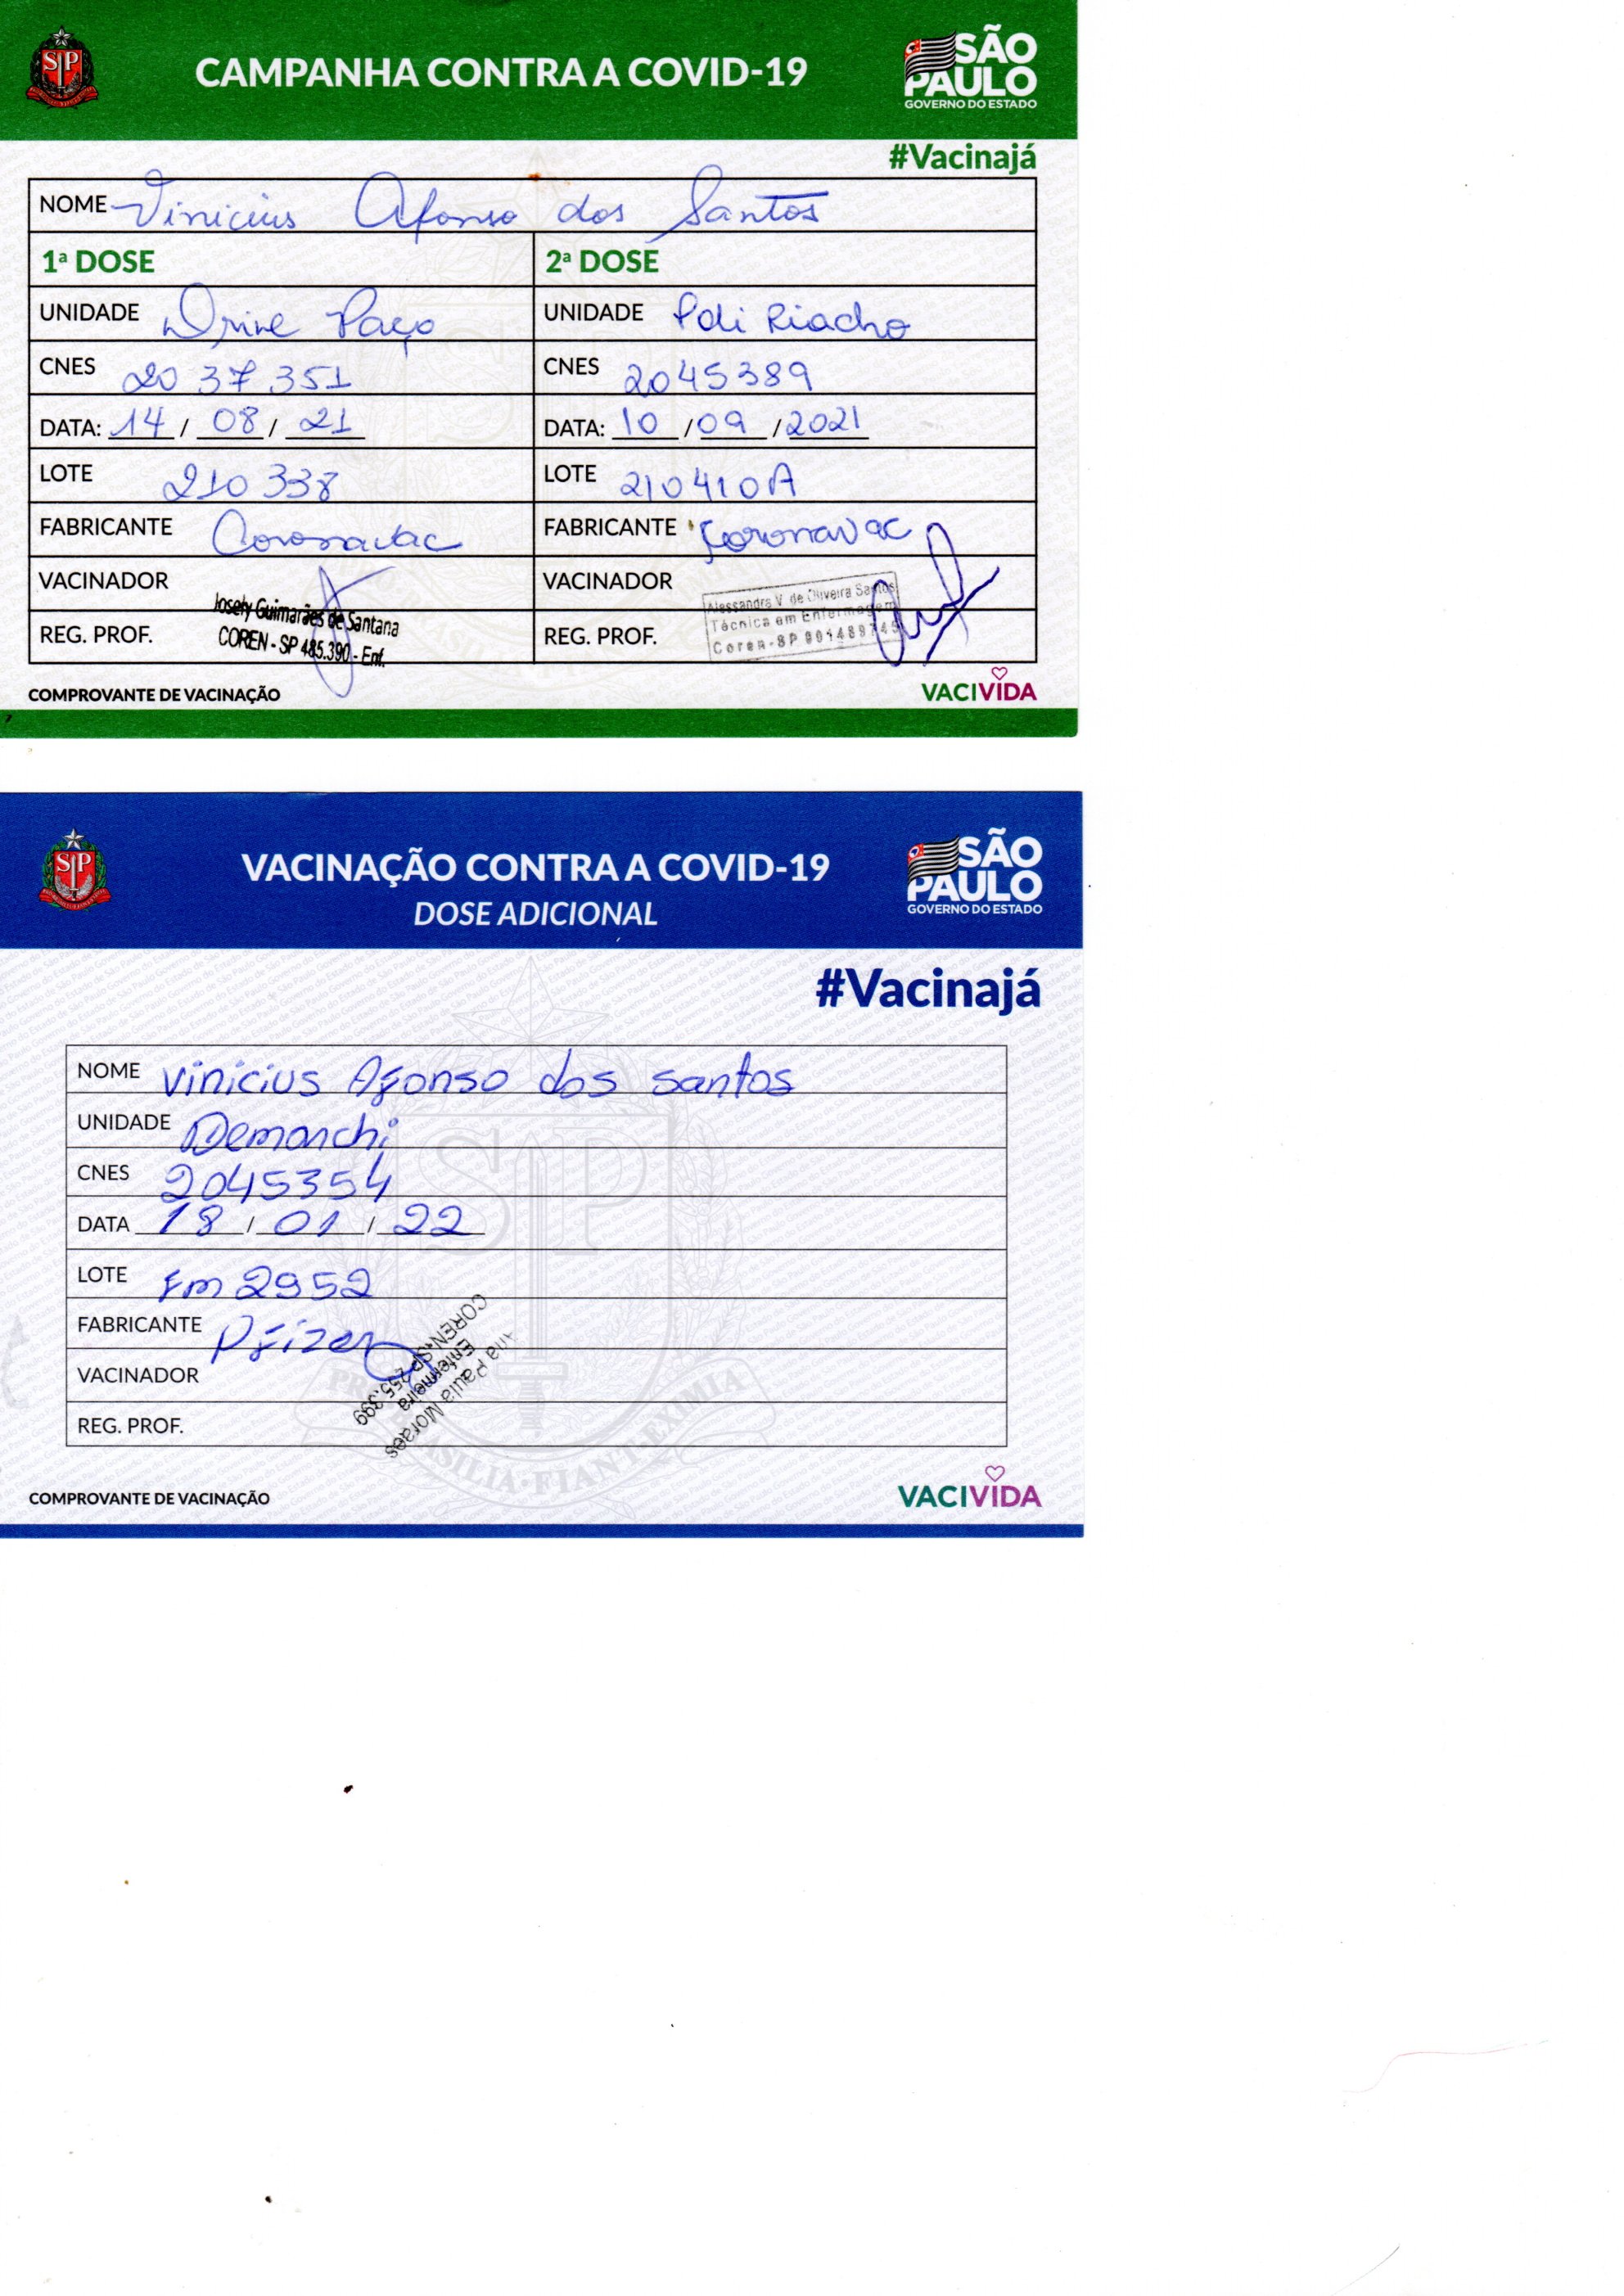 SÃO
PAULO
GOVERNO DO ESTADO
CAMPANHA CONTRA A COVID-19
#Vacinajá
NOME Vinicius Afonso dos Santos
1ª DOSE 2ª DOSE
UNIDADE Drive Paço UNIDADE Poli Riacho
CNES 2037351 CNES 2045389
DATA: 14 / 08 / 21 DATA: 10 / 09 / 2021
LOTE 210338 LOTE 210410A
FABRICANTE Coronavac FABRICANTE Coronavac
VACINADOR VACINADOR
Josely Guimarães de Santana Alessandra V. de Oliveira Santos
Técnica em Enfermagem
REG. PROF. COREN - SP 485.390 - Enf. REG. PROF. Coren-SP 001489745
COMPROVANTE DE VACINAÇÃO VACIVIDA
VACINAÇÃO CONTRA A COVID-19
DOSE ADICIONAL
SÃO
PAULO
GOVERNO DO ESTADO
#Vacinajá
NOME Vinicius Afonso dos Santos
UNIDADE Demarchi
CNES 2045354
DATA 18 / 01 / 22
LOTE Fm2952
FABRICANTE Pfizer
VACINADOR
REG. PROF.
Ana Paula Moraes
Enfermeira
COREN-SP 255.399
COMPROVANTE DE VACINAÇÃO VACIVIDA